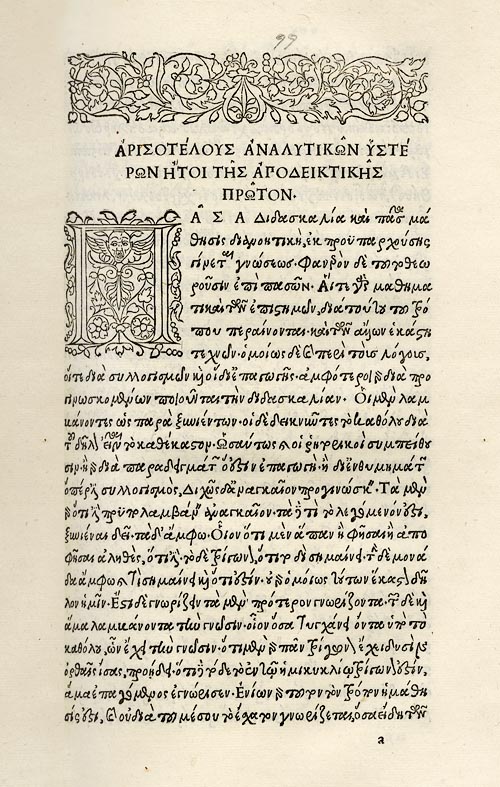 99
ἈΡΙΣΟΤΈΛΟΥΣ ἈΝΑΛΥΤΙΚΩ͂Ν ὙΣΤΈ
ΡΩΝ ἬΤΟΙ ΤΗ͂Σ ἈΠΟΔΕΙΚΤΙΚΗ͂Σ
ΠΡΩ͂ΤΟΝ·
ΠΑ͂ΣΑ Διδασκαλία καὶ πᾶσα μά
θησις διανοητικὴ, ἐκ προϋπαρχούσης
γίνεται γνώσεως· Φανερὸν δὲ τοῦτο θεω
ροῦσιν ἐπὶ πασῶν· Αἵ τε γὰρ μαθημα
τικαὶ τῶν ἐπιστημῶν, διὰ τούτου τοῦ τρό
που περαίνονται· καὶ τῶν ἄλλων ἑκάστη
τεχνῶν· ὁμοίως δὲ καὶ περὶ τοὺς λόγους,
οἵτε διὰ συλλογισμῶν καὶ οἱ δι' ἐπαγωγῆς· ἀμφότεροι γὰρ διὰ προ
γινωσκομένων ποιοῦνται τὴν διδασκαλίαν· Οἱ μὲν λαμ
βάνοντες ὡς παρὰ ξυνιέντων· οἱ δὲ δεικνῦντες τὸ καθόλου διὰ
τοῦ δῆλον εἶναι τὸ καθέκαστον· Ὡσαύτως δὲ καὶ οἱ ῥητορικοὶ συμπείθου
σιν· ἢ γὰρ διὰ παραδειγμάτων ὅ ἐστιν ἐπαγωγὴ· ἢ δι' ἐνθυμημάτων
ὅπερ ἐστὶ συλλογισμὸς, Διχῶς δ' ἀναγκαῖον προγινώσκειν· Τὰ μὲν
γὰρ ὅτι ἔστι προϋπολαμβάνειν ἀναγκαῖον· τὰ δὲ τί τὸ λεγόμενόν ἐστι,
ξυνιέναι δεῖ· τὰ δ' ἄμφω· Οἷον ὅτι μὲν ἅπαν ἢ φῆσαι ἢ ἀπο
φῆσαι ἀληθὲς, ὅτι ἔστι· τὸ δὲ τρίγωνον, ὅτι τοδὶ σημαίνει· τὴν δὲ μονά
δα ἄμφω καὶ τί σημαίνει καὶ ὅτι ἔστιν· οὐ γὰρ ὁμοίως τούτων ἕκαστον δῆ
λον ἡμῖν· Ἔστι δὲ γνωρίζειν τὰ μὲν πρότερον γνωρίζοντα· τῶν δὲ καὶ
ἅμα λαμβάνοντα τὴν γνῶσιν· οἷον ὅσα τυγχάνει ὄντα ὑπὸ τὸ
καθόλου, ὧν ἔχει τὴν γνῶσιν· ὅτι μὲν γὰρ πᾶν τρίγωνον ἔχει δυσὶν
ὀρθαῖς ἴσας, προῄδει· ὅτι δὲ τόδε τὸ ἐν τῷ ἡμικυκλίῳ τρίγωνόν ἐστιν,
ἅμα ἐπαγόμενος ἐγνώρισεν· Ἐνίων γὰρ τοῦτον τὸν τρόπον ἡ μάθη
σίς ἐστι, καὶ οὐ διὰ τοῦ μέσου τὸ ἔσχατον γνωρίζεται, ὅσα εἴδη τῶν
a